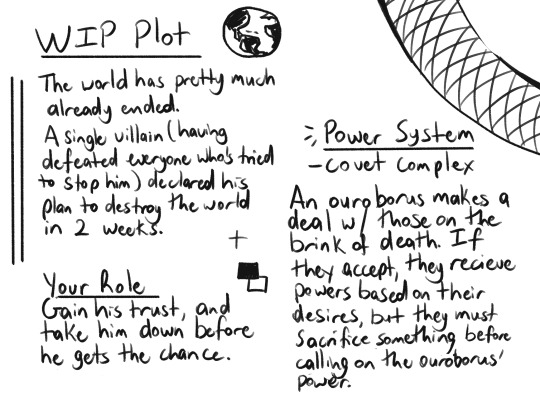 WIP Plot
The world has pretty much
already ended.
A single villain (having
defeated everyone who's tried
to stop him) declared his
plan to destroy the world
in 2 weeks.
Your Role
Gain his trust, and
take him down before
he gets the chance.
Power System
- Covet Complex
An ouroborus makes a
deal w/ those on the
brink of death. If
they accept, they recieve
powers based on their
desires, but they must
sacrifice something before
calling on the ouroborus'
power.